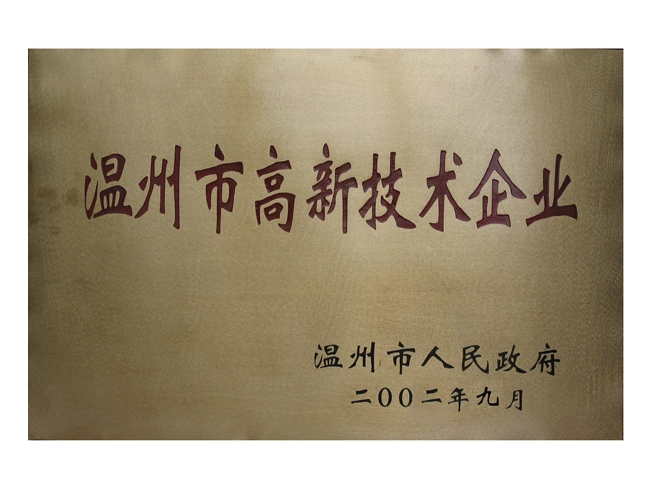 温州市高新技术企业
温州市人民政府
二00二年九月